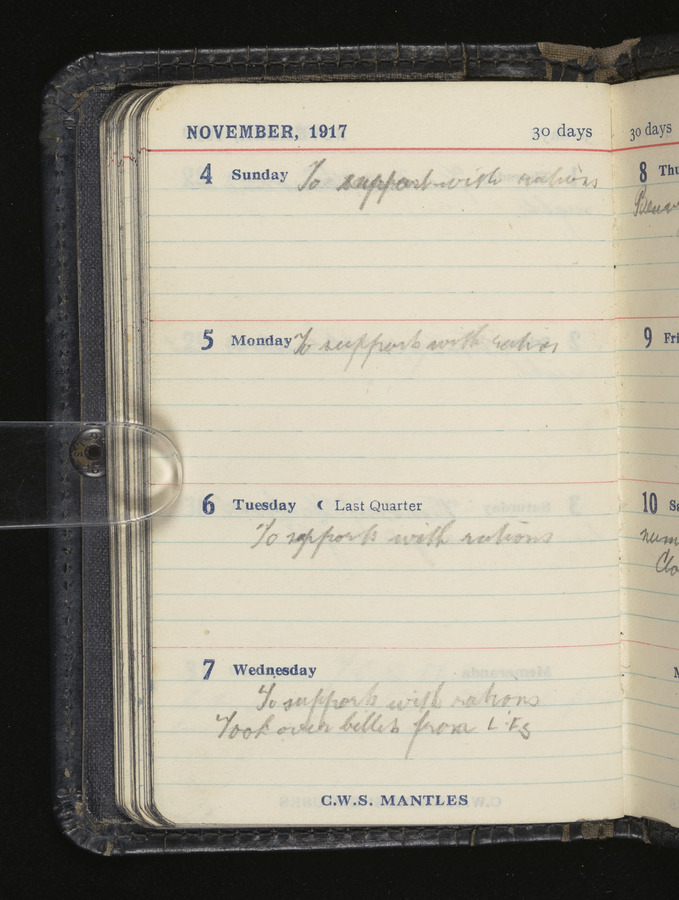 NOVEMBER, 1917 30 days
4 Sunday To support with rations
5 Monday To supports with rations
6 Tuesday ☾ Last Quarter
To supports with rations
7 Wednesday
To supports with rations
Took over billets from
C.W.S. MANTLES
30 days
8 Thu
9 Fri
10 Sa
num
Clo